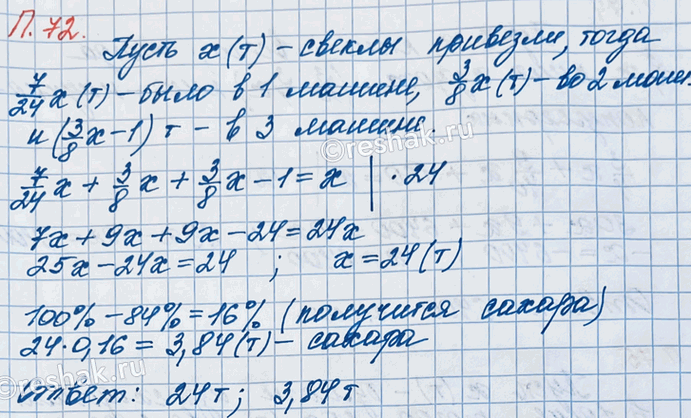 П. 72.
Пусть x (т) – свеклы привезли, тогда
7/24 x (т) – было в 1 машине, 3/8 x (т) – во 2 маши.
и (3/8 x – 1) т – в 3 машине.
7/24 x + 3/8 x + 3/8 x – 1 = x | · 24
7x + 9x + 9x – 24 = 24x
25x – 24x = 24 ; x = 24 (т)
100% – 84% = 16% (получится сахара)
24 · 0,16 = 3,84 (т) – сахара
ответ: 24 т; 3,84 т
reshak.ru